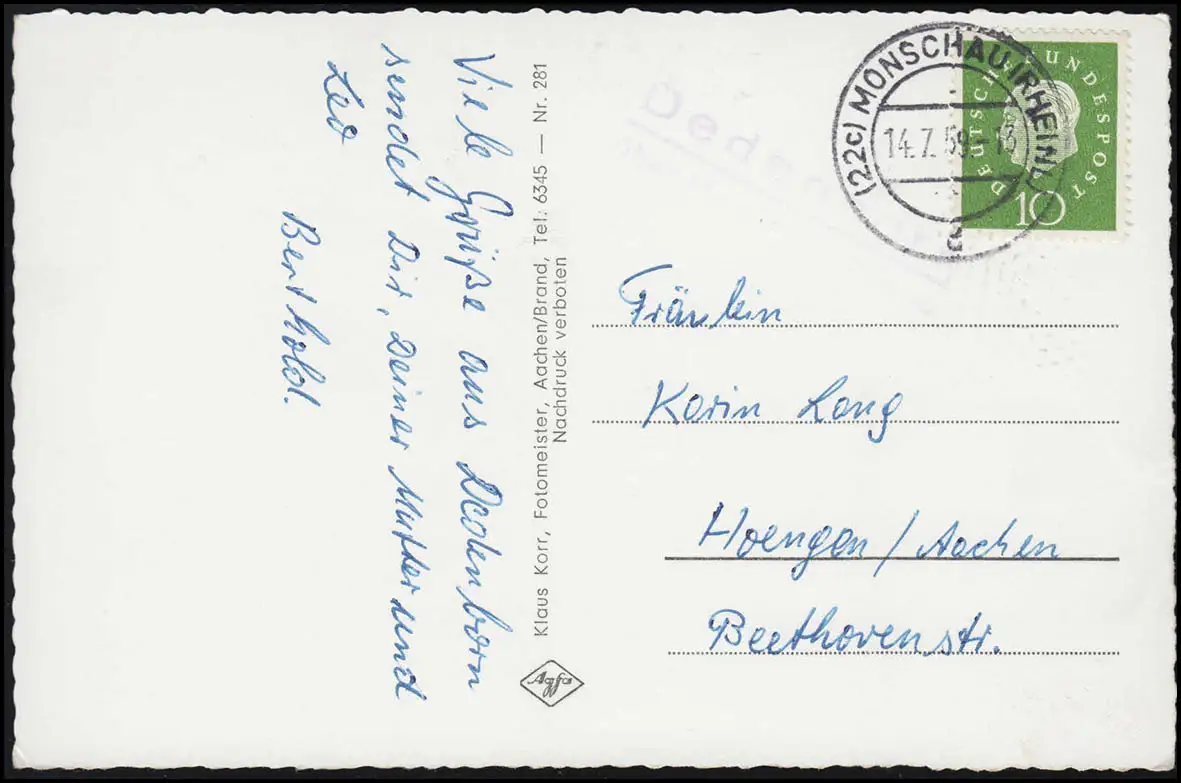 Viele Grüße aus Dedenborn
sendet Dir, Deiner Mutter und
Leo
Berthold.
Klaus Korr, Fotomeister, Aachen/Brand, Tel. 6345 — Nr. 281
Nachdruck verboten
Agfa
(22c) MONSCHAU (RHEINL)
14.7.59.-13
a
DEUTSCHE BUNDESPOST
10
Fräulein
Karin Lang
Hoengen / Aachen
Beethovenstr.